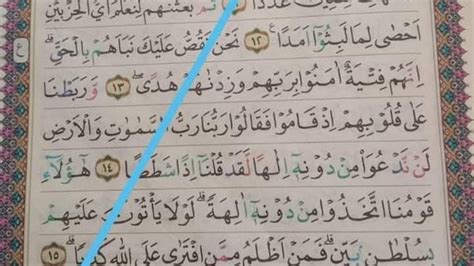 عَدَدًا ثُمَّ بَعَثْنٰهُمْ لِنَعْلَمَ اَيُّ الْحِزْبَيْنِ
اَحْصٰى لِمَا لَبِثُوْٓا اَمَدًا ١٢ نَحْنُ نَقُصُّ عَلَيْكَ نَبَاَهُمْ بِالْحَقِّۗ ع
اِنَّهُمْ فِتْيَةٌ اٰمَنُوْا بِرَبِّهِمْ وَزِدْنٰهُمْ هُدًىۖ ١٣ وَّرَبَطْنَا
عَلٰى قُلُوْبِهِمْ اِذْ قَامُوْا فَقَالُوْا رَبُّنَا رَبُّ السَّمٰوٰتِ وَالْاَرْضِ
لَنْ نَّدْعُوَا۟ مِنْ دُوْنِهٖٓ اِلٰهًا لَّقَدْ قُلْنَآ اِذًا شَطَطًا ١٤ هٰٓؤُلَاۤءِ
قَوْمُنَا اتَّخَذُوْا مِنْ دُوْنِهٖٓ اٰلِهَةًۗ لَوْلَا يَأْتُوْنَ عَلَيْهِمْ
بِسُلْطٰنٍۢ بَيِّنٍۗ فَمَنْ اَظْلَمُ مِمَّنِ افْتَرٰى عَلَى اللّٰهِ كَذِبًاۗ ١٥